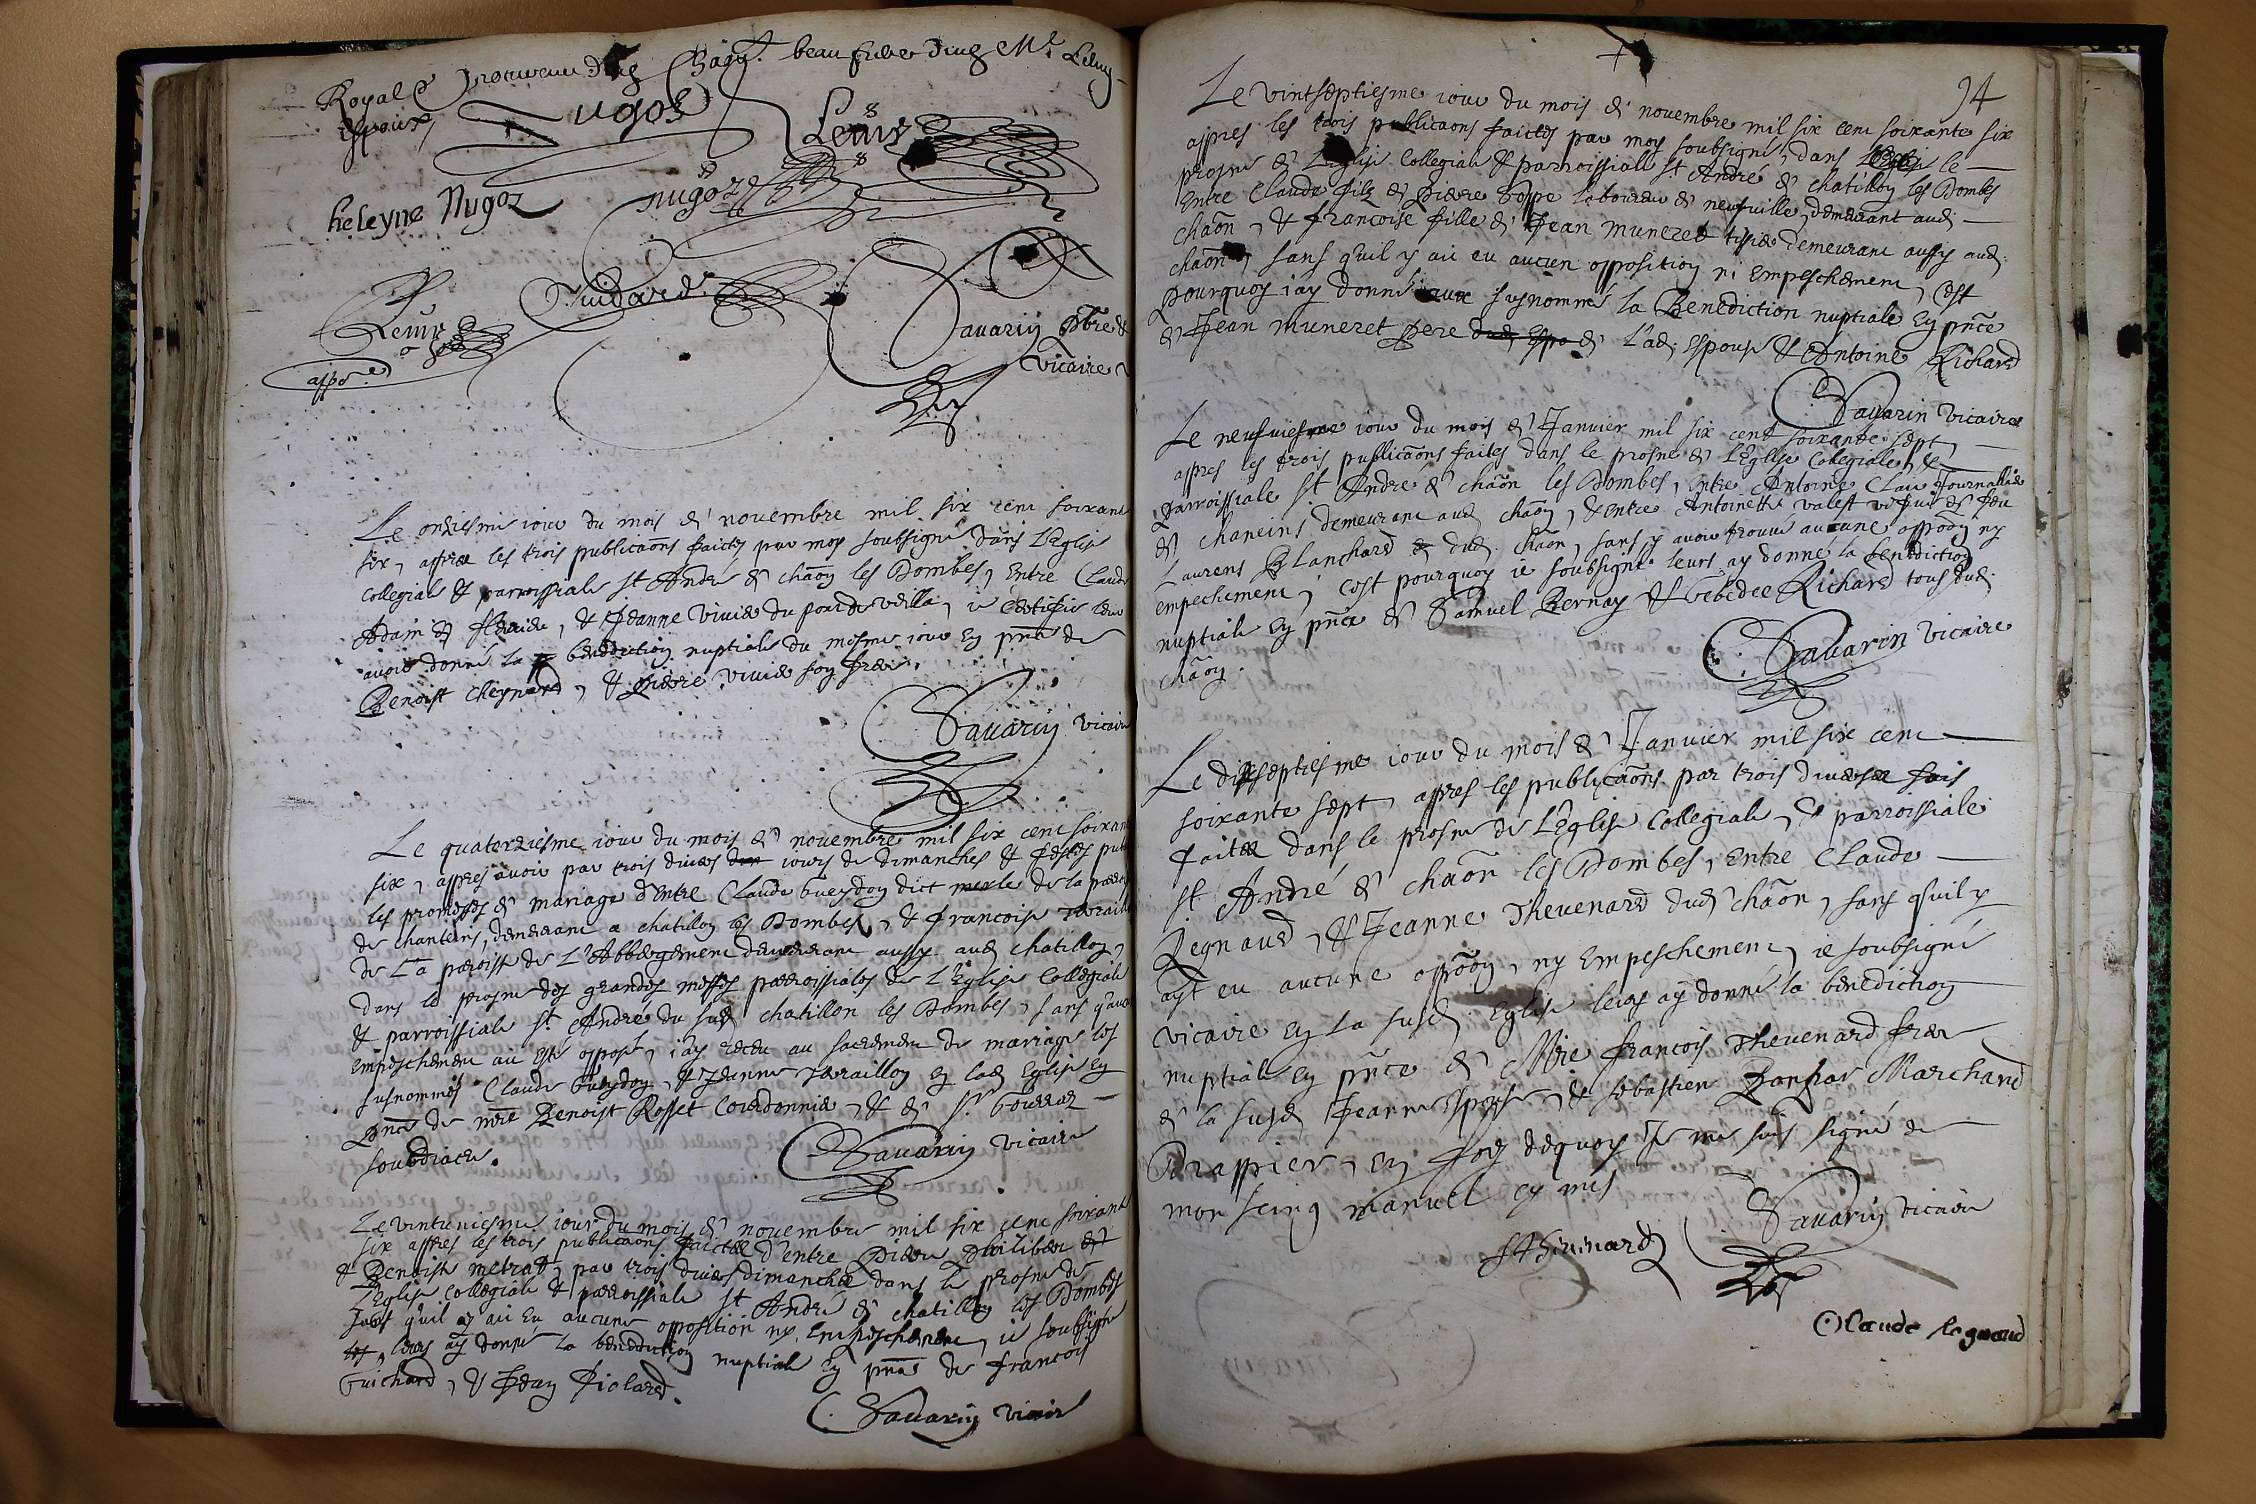 Royal & procureur dud Chaõn beau frere dud Mr Leluy
espoux,
Nugoz
Leluy
heleyne Nugoz
nugoz
Guichard
Leluy
Savarin pbre &
vicaire
espoux
Le onziesme iour du mois de novembre mil six cent soixante
six, apres les trois publicaõns faictes par moy soubsigné dans l'Eglise
collegiale & parroissiale St André de chaõn les Dombes, Entre Claude
Adam de fleurieu, & Jeanne Vivier du pont de veilla, ie certifie leur
avoir donné la benediction nuptiale du mesme iour En pñce de
Benoist cheynard, & Pierre Vivier son frere.
Savarin vicaire
Le quatorziesme iour du mois de novembre mil six cent soixante
six, apres avoir par trois divers iours de dimanches & festes publié
les promesses de mariage d'Entre Claude Gueydon dict merle de la paroisse
de chanteins, demeurant a chatillon les Dombes, & francoise
de La paroisse de L'Abbergement demeurant aussy aud chatillon,
dans le prosne des grandes messes parroissiales de L'Eglise Collegiale
& parroissiale St André du sud chatillon les Dombes, sans qu'aucun
empeschement aie esté opposé, i'ay receu au sacrement de mariage les
susnommés Claude Gueydon, & Jeanne en lad Eglise en
pñce de mre Benoist Rosset Cordonnier, & de Sr
soubdiacre.
Savarin vicaire
Le vintuniesme iour du mois de novembre mil six cent soixante
six apres les trois publicaõns faictes d'entre Pierre Philibert
& Benoiste metrad, par trois divers dimanches dans le prosne de
l'Eglise collegiale & parroissiale St André de chatillon les Dombes
sans qu'il y aie eu aucune opposition ny Empeschement, ie soubsigné
leurs ay donné la benediction nuptiale En pñce de francois
Guichard, & Jean Piolard.
Savarin vicaire
94
Le vintseptiesme iour du mois de novembre mil six cent soixante six
apres les trois publicaons faictes par moy soubsigné, dans le
prosne de l'Eglise Collegiale & parroissiale St André de chatillon les Dombes
Entre Claude filz de Pierre Poppe laboureur de neufville, demeurant aud
chaõn, & francoise fille de Jean Muneret tissier demeurant aussy aud
chaõn, sans qu'il y aie eu aucun opposition ni Empeschement, C'est
pourquoy i'ay donné aux susnommés la Benediction nuptiale En pñce
de Jean Muneret pere de L'ad espouse & Antoine Richard
Savarin vicaire
Le neufviesme iour du mois de Janvier mil six cent soixante sept
apres les trois publicaõns faites dans le prosne de l'Eglise Colegiale, &
parroissiale St André de chaõn les Dombes, Entre Antoine Clau Journallier
de chaneins demeurant aud chaõn, & entre Antoinette Valest vefve de feu
Laurens Blanchard dud chaõn, sans y avoir trouvé aucune oppõon ny
empechement, c'est pourquoy ie soubsigné leurs ay donné la benediction
nuptiale En pñce de Samuel Bernay & Gebedee Richard tous dud
chaõn.
Savarin vicaire
Le dixseptiesme iour du mois de Janvier mil six cent
soixante sept, apres les publicaõns par trois diverses fois
faites dans le prosne de L'Eglise Collegiale, & parroissiale
St André de chaõn les Dombes, Entre Claude
Regnaud, & Jeanne Thevenard dud chaõn, sans qu'il y
ayt eu aucune oppõon, ny Empeschement, ie soubsigné
vicaire En la susd Eglise leurs ay donné la benediction
nuptiale En pñce de Mre francois Thevenard frere
de la susd Jeanne espouse, & sebastien Marchand
Drappier, En foy dequoy Je me suis signé de
mon seing manuel Cy mis
Savarin vicaire
Claude Regnaud